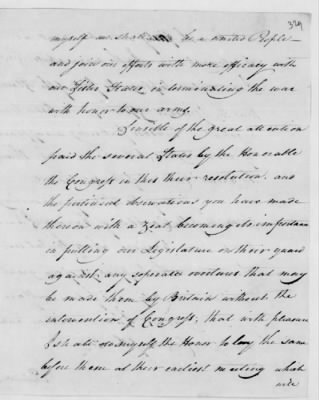 329
myself we shall be a united People —
and join our efforts with more efficacy with
our Sister States in terminating the war
with honor to our arms.
Sensible of the great attention
paid the several States by the Honorable
the Congress in this their resolution, and
the pertinent observations you have made
thereon with a Zeal becoming its importance
in putting our Legislature on their guard
against any seperate overtures that may
be made them by Britain without the
intervention of Congress; that with pleasure
I shall do myself the Honor to lay the same
before them at their earliest meeting which
will